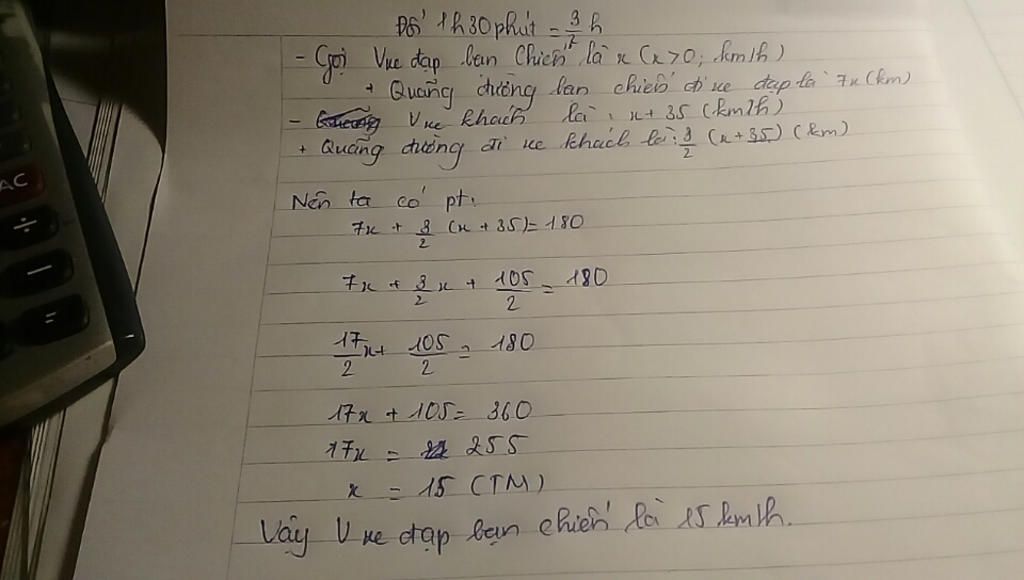 Đổi 1h30phút = 3/2 h
- Gọi Vxe đạp bạn Chiến là x (x>0; km/h)
+ Quãng đường bạn chiến đi xe đạp là 7x (km)
- Vxe khách là: x+35 (km/h)
+ Quãng đường đi xe khách là: 3/2 (x+35) (km)
Nên ta có pt:
7x + 3/2 (x+35) = 180
7x + 3/2 x + 105/2 = 180
17/2 x + 105/2 = 180
17x + 105 = 360
17x = 255
x = 15 (TM)
Vậy V xe đạp bạn chiến là 15 km/h.
AC
÷
−
=